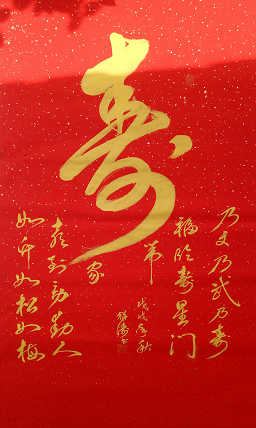 寿
乃文乃武乃寿
福临寿星门
第
戊戌年秋
家
喜到劳动人
如竹如松如梅